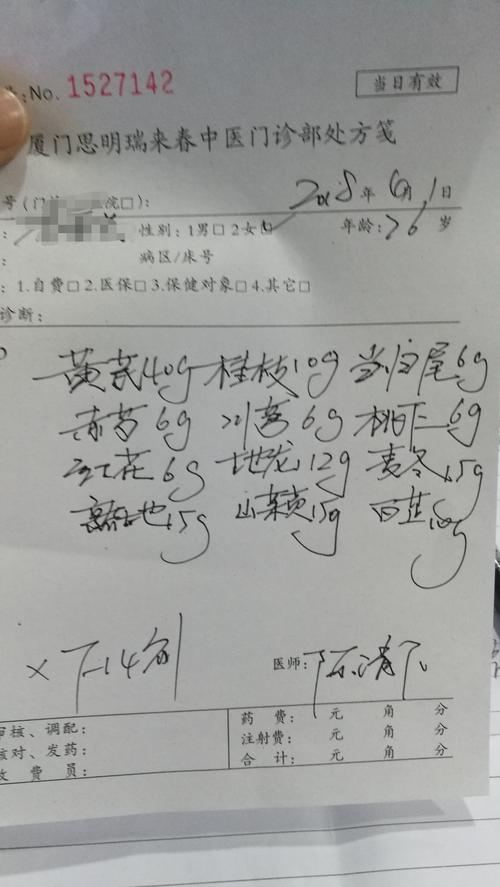 No. 1527142 当日有效
厦门思明瑞来春中医门诊部处方笺
号(门 院□): 2018年6月1日
: 性别: 1男□ 2女☑ 年龄: 76岁
: 病区/床号
: 1.自费□ 2.医保□ 3.保健对象□ 4.其它□
诊断:
黄芪40g 桂枝10g 当归尾6g
赤芍6g 川芎6g 桃仁6g
红花6g 地龙12g 麦冬15g
熟地15g 山萸肉15g 百芷10g
×7-14剂 医师:
审核、调配: 药费: 元 角 分
核对、发药: 注射费: 元 角 分
收费员: 合计: 元 角 分